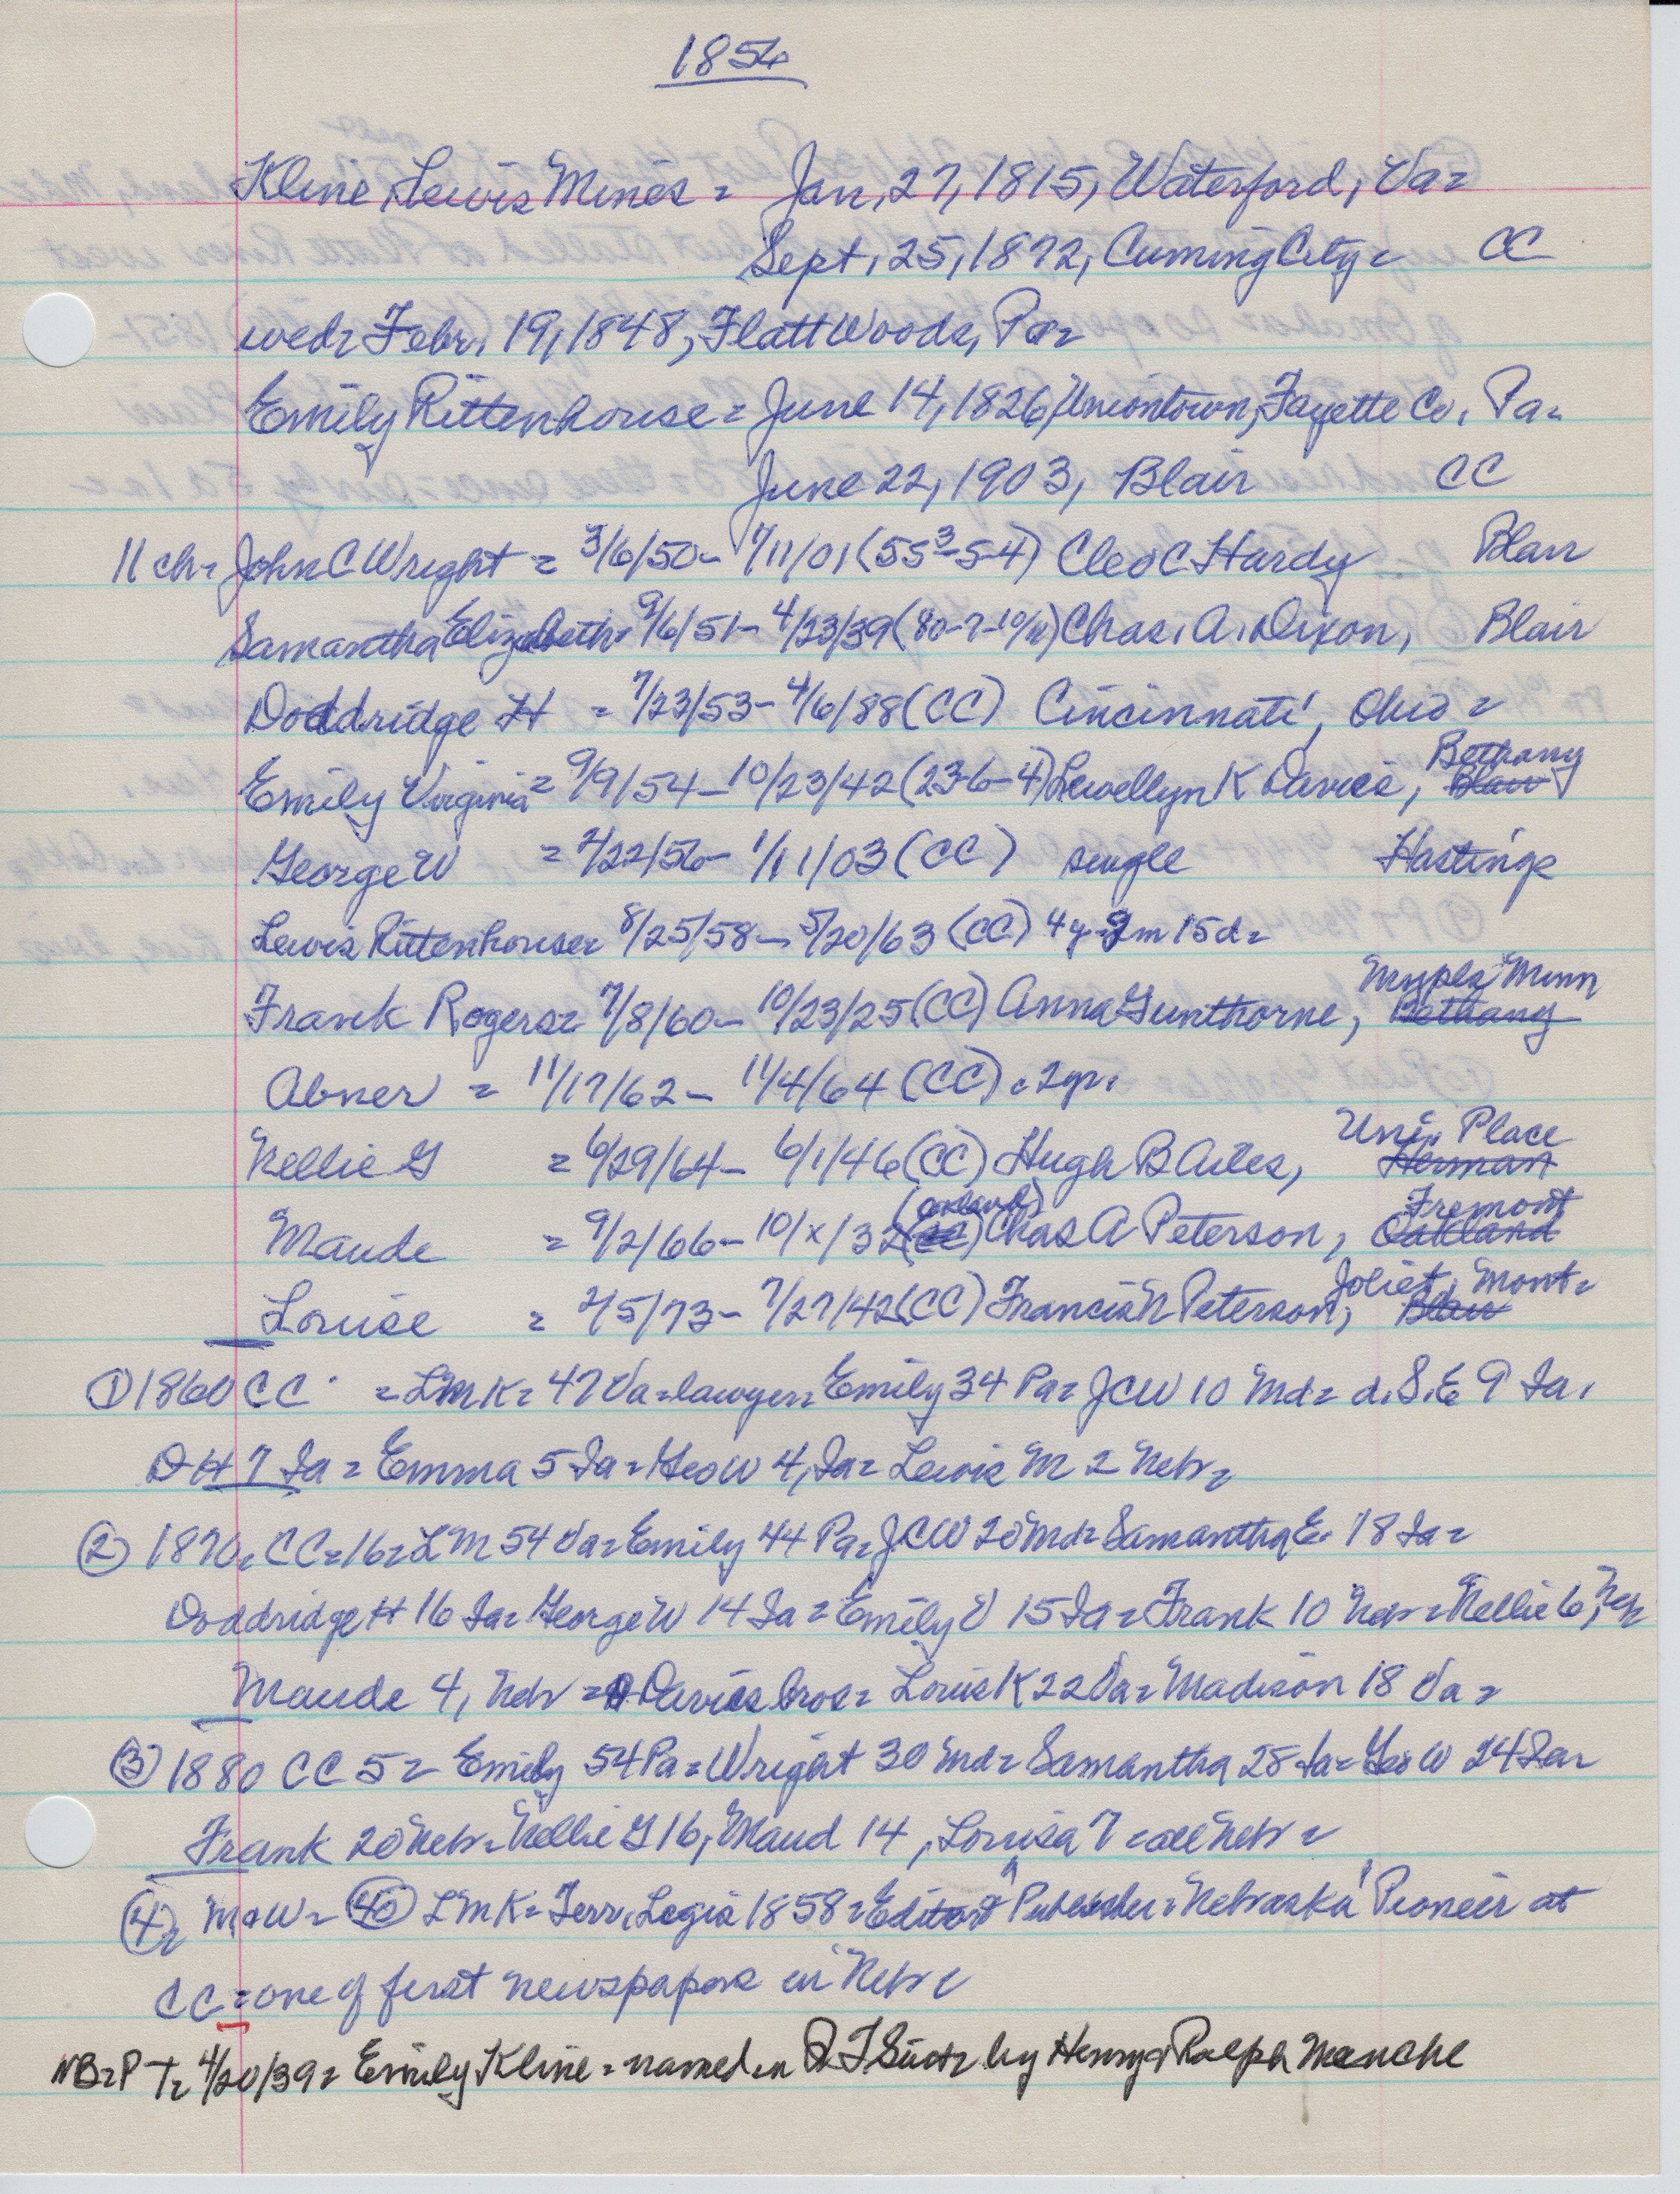 1856
Kline, Lewis Mines = Jan, 27, 1815, Waterford, Va=
Sept, 25, 1872, Cuming City = CC
wed= Febr. 19, 1848, Flatt Woods, Pa=
Emily Rittenhouse = June 14, 1826, Uniontown, Fayette Co, Pa=
June 22, 1903, Blair CC
11 ch= John C Wright = 3/6/50- 7/11/01 (55³-5-4) Cleo C Hardy Blair
Samantha Elizabeth= 9/6/51- 4/23/39 (80-7-10/11) Chas. A. Dixon, Blair
Doddridge H = 7/23/53- 4/6/88 (CC) Cincinnati, Ohio =
Emily Virginia = 9/9/54- 10/23/42 (23-6-4) Lewellyn K Davies, Bethany Blair
George W = 2/22/56- 1/11/03 (CC) single Hastings
Lewis Rittenhouse= 8/25/58- 5/20/63 (CC) 4y-9m 15d=
Frank Rogers= 7/8/60- 10/23/25 (CC) Anna Gunthorne, Mnpls Minn Bethany
Abner = 11/17/62- 11/4/64 (CC) = 2yr.
Nellie G = 6/29/64- 6/1/46 (CC) Hugh B Ailes, Uni. Place Herman
Maude = 9/2/66- 10/x/32 (Oakland) (CC) Chas A Peterson, Fremont Oakland
Louise = 2/5/73- 7/27/42 (CC) Francis N Peterson, Joliet, Mont= Blair
① 1860 CC = LMK= 47 Va=lawyer= Emily 34 Pa= JCW 10 Md= d. S.E 9 Ia.
DH 7 Ia = Emma 5 Ia = Geo W 4, Ia= Lewis M 2 Nebr=
② 1870= CC=16= LM 54 Va= Emily 44 Pa= JCW 20 Md= Samantha E 18 Ia=
Doddridge H 16 Ia= George W 14 Ia = Emily V 15 Ia = Frank 10 Nebr = Nellie 6, Neb
Maude 4, Nebr = Davies bros= Louis K 22 Va= Madison 18 Va =
③ 1880 CC 5= Emily 54 Pa = Wright 30 Md= Samantha 28 Ia= Geo W 24 Ia=
Frank 20 Nebr= Nellie G 16, Maud 14, Louisa 7 = all Nebr =
④= M&W= 40 LMK= Terr. Legis 1858 = Editor & Publisher = Nebraska Pioneer at
CC = one of first newspapers in Nebr =
NB= P T= 4/20/39= Emily Kline = named in Q T Suit= by Henry & Ralph Mencke